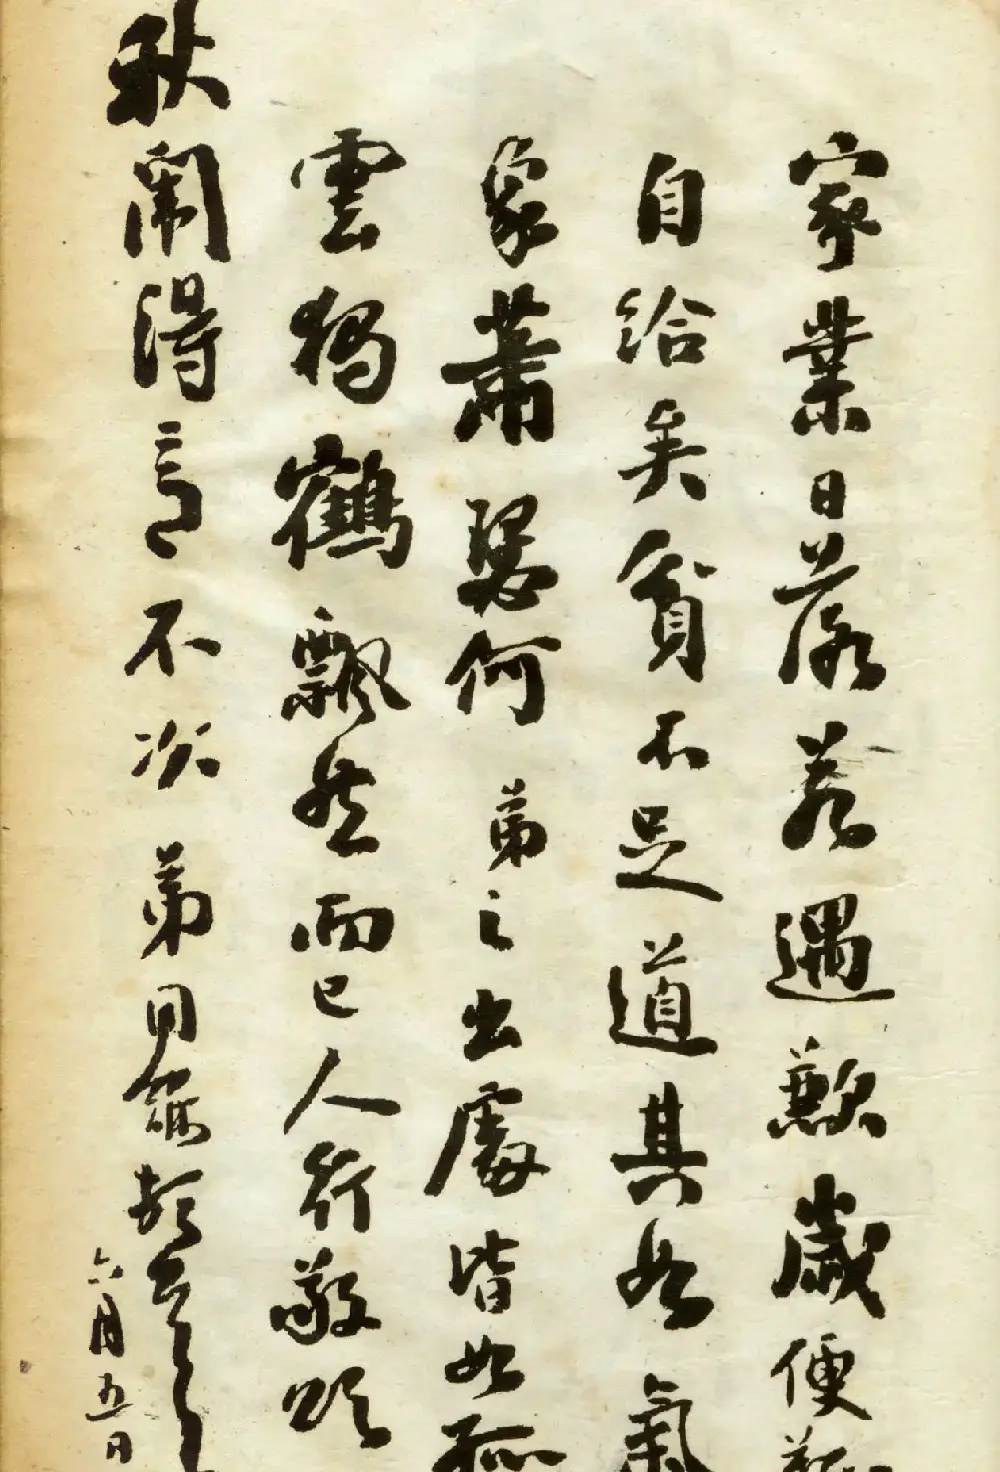 家業日落若遇歉歲便難
自給矣貧不足道其如氣
象蕭瑟何弟之出處皆如孤
雲獨鶴飄然而已人行敬頌
秋闈得意不次弟同龢頓首
六月五日